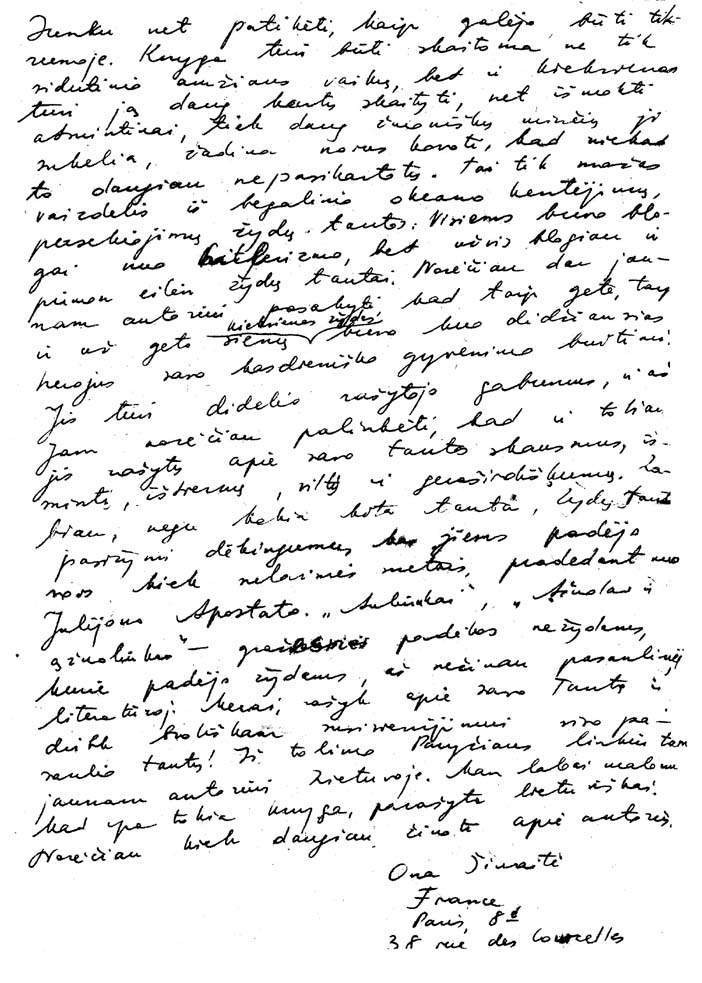 Sunku net patikėti, kaip galėjo būti tik-
rumoje. Knyga turi būti skaitoma ne tik
vidutinio amžiaus vaikų, bet ir kiekvienas
turi ją daug kartų skaityti, net išmokti
atmintinai, tiek daug žmoniškų minčių ji
sukelia, žadina norus kovoti, kad niekad
to daugiau nepasikartotų. Tai tik mažas
vaizdelis iš begalinio okeano kentėjimų,
persekiojimų žydų tautos. Visiems buvo blo-
gai nuo hitlerizmo, bet užvis blogiau ir
pirmon eilėn žydų tautai. Norėčiau dar jau-
nam autoriui pasakyti kad taip gete, taip
kiekvienas žydas
ir už geto sienų buvo kuo didžiausias
herojus savo kasdieniško gyvenimo buitimi.
Jis turi didelio rašytojo gabumus, ir aš
Jam norėčiau palinkėti, kad ir toliau
jis rašytų apie savo tautos skausmus, iš-
mintį, ištvermę, viltį ir geraširdiškumą. La-
biau, negu kokia kita tauta, žydų tauta
pasižymi dėkingumu kas jiems padėjo
nors kiek nelaimės metais, pradedant nuo
Julijono Apostato. „ “, „Ąžuolas ir
ąžuoliukas“ – parodėlos nežydams,
kurie padėjo žydams, aš nežinau pasaulinėj
literatūroj. Kurai, rašyk apie savo Tautą ir
dirbk broliškam susivienijimui viso pa-
saulio tautų! Iš tolimo Paryžiaus linkiu tam
jaunam autoriui Lietuvoje. Man labai malonu
kad yra tokia knyga, parašyta lietuviškai.
Norėčiau kiek daugiau žinoti apie autorių.
Ona Šimaitė
France
Paris, 8e
38 rue des Courcelles